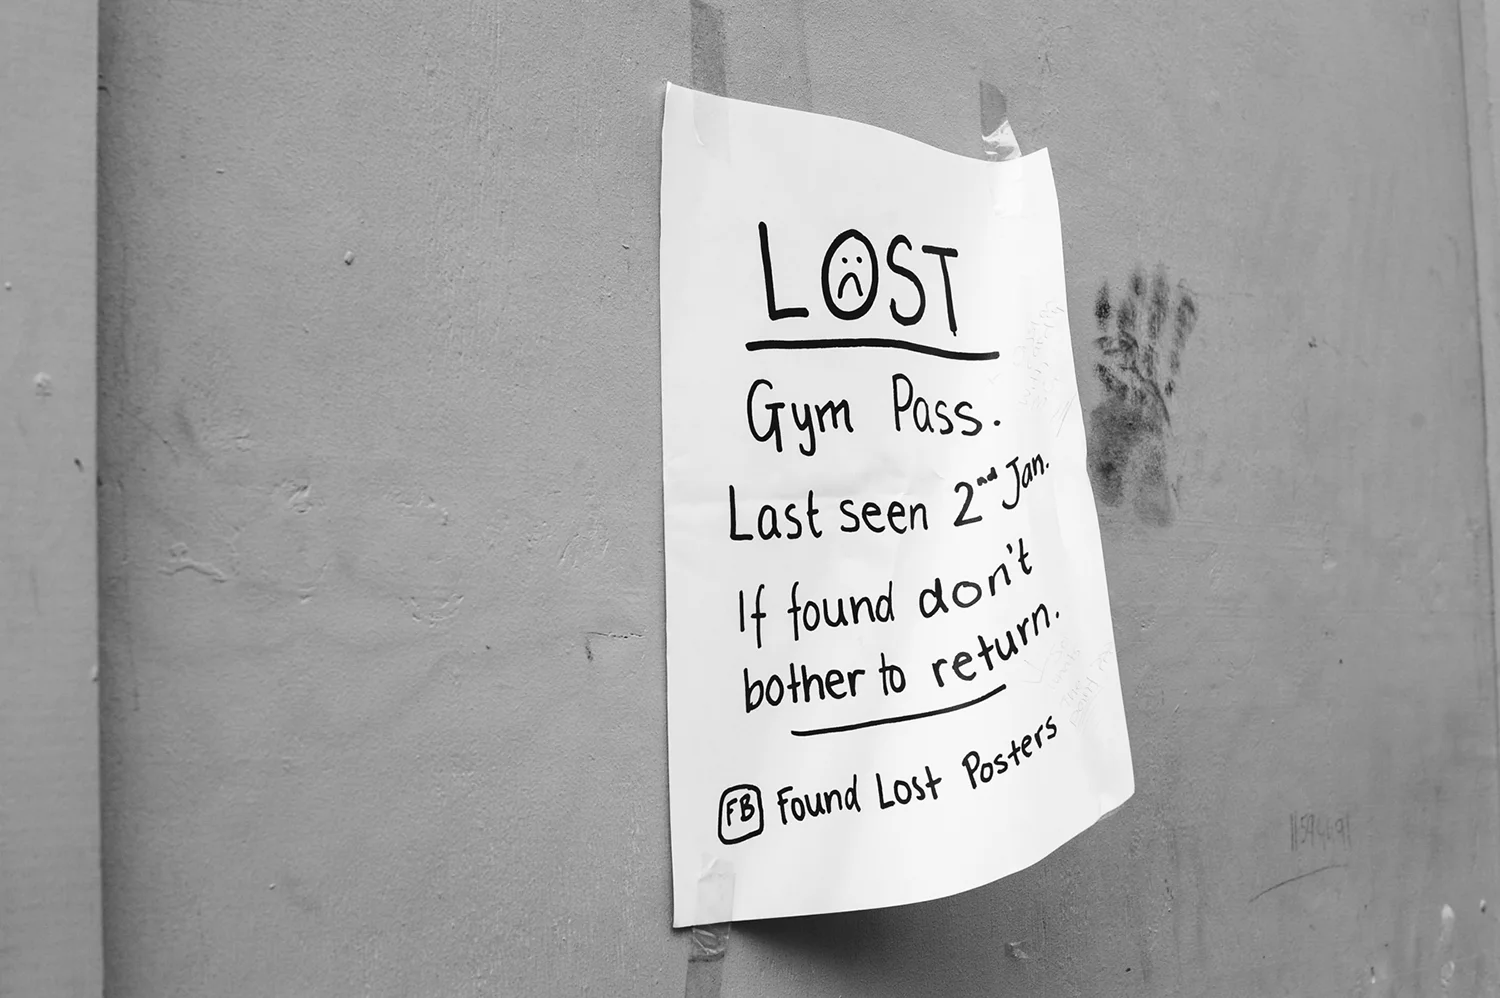 LOST
Gym Pass.
Last seen 2nd Jan.
If found don't
bother to return.
FB Found Lost Posters